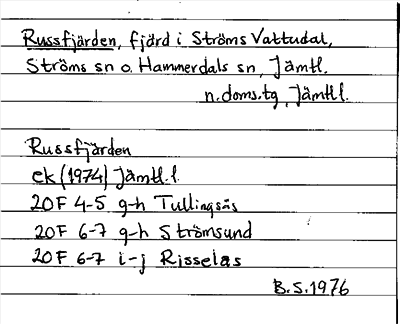 Russfjärden, fjärd i Ströms Vattudal,
Ströms sn o. Hammerdals sn, Jämtl.
n.doms.tg, Jämtl l.
Russfjärden
ek (1974) Jämtl. l.
20F 4-5 g-h Tullingsås
20F 6-7 g-h Strömsund
20F 6-7 i-j Risselås
B.S.1976